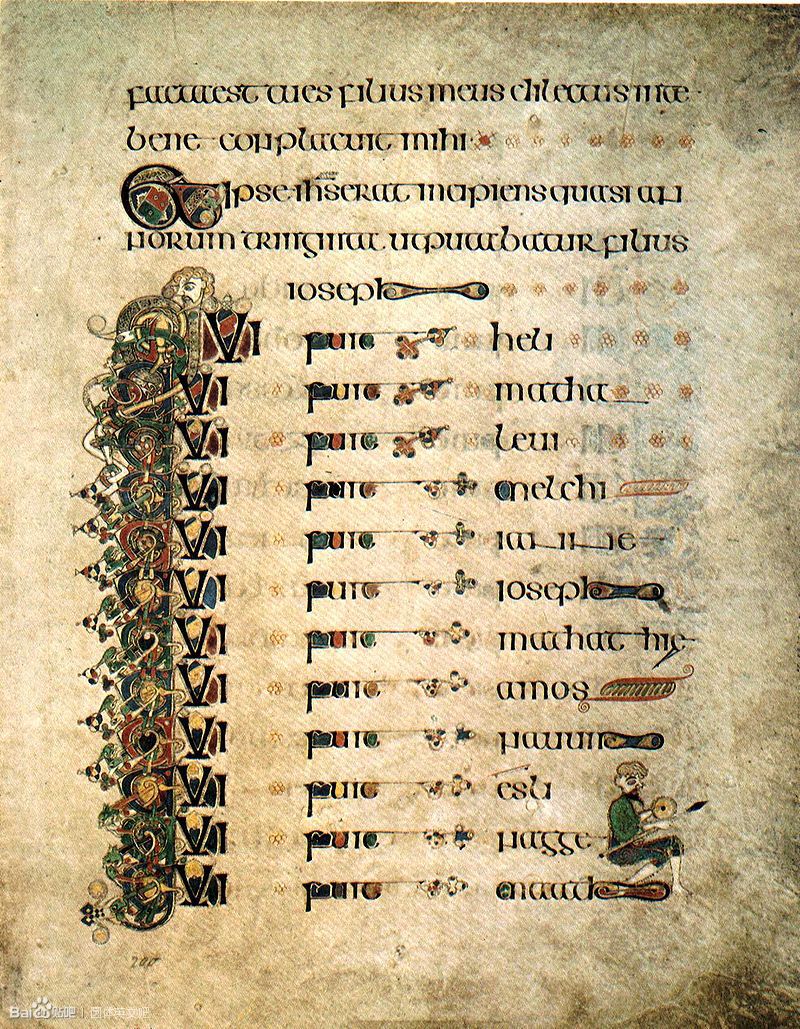 factaest tues filius meus dilectus inte
bene conplacuit mihi
Et ipse ihs erat incipiens quasi an
norum tringinta utputabatur filius
ioseph
QVI fuit heli
QVI fuit matha
QVI fuit leui
QVI fuit melchi
QVI fuit ianne
QVI fuit ioseph
QVI fuit mathathie
QVI fuit amos
QVI fuit nauum
QVI fuit esli
QVI fuit nagge
QVI fuit maath
200
Bai贴吧